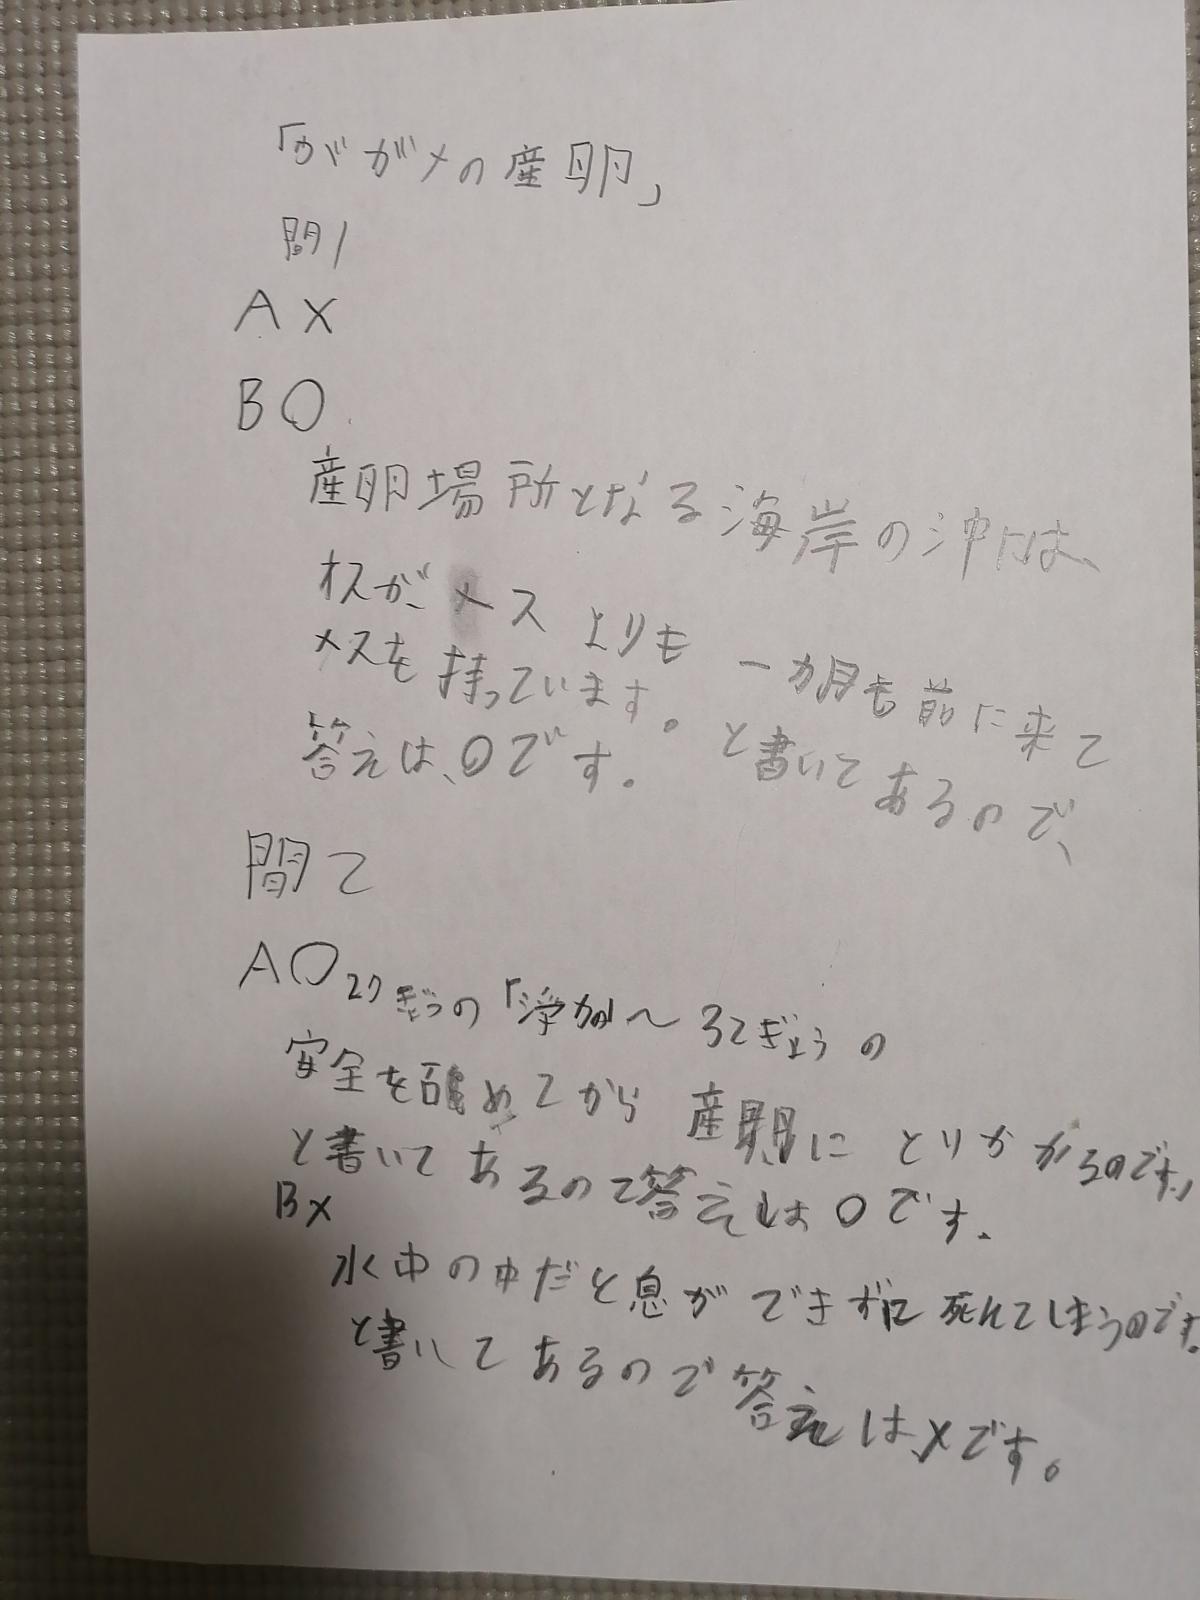 「ががメの産卵」
問1
A X
B O
産卵場所となる海岸の沖には、
オスが、メスよりも一カ月も前に来て
メスを持っています。と書いてあるので、
答えは、Oです。
問2
A O 27ぎょうの「浮かぶ〜32ぎょうの
安全を確めてから産卵にとりかかるのです」
と書いてあるので答えはOです。
B X
水中の中だと息ができずに死んでしまうのです。
と書いてあるので答えは、Xです。